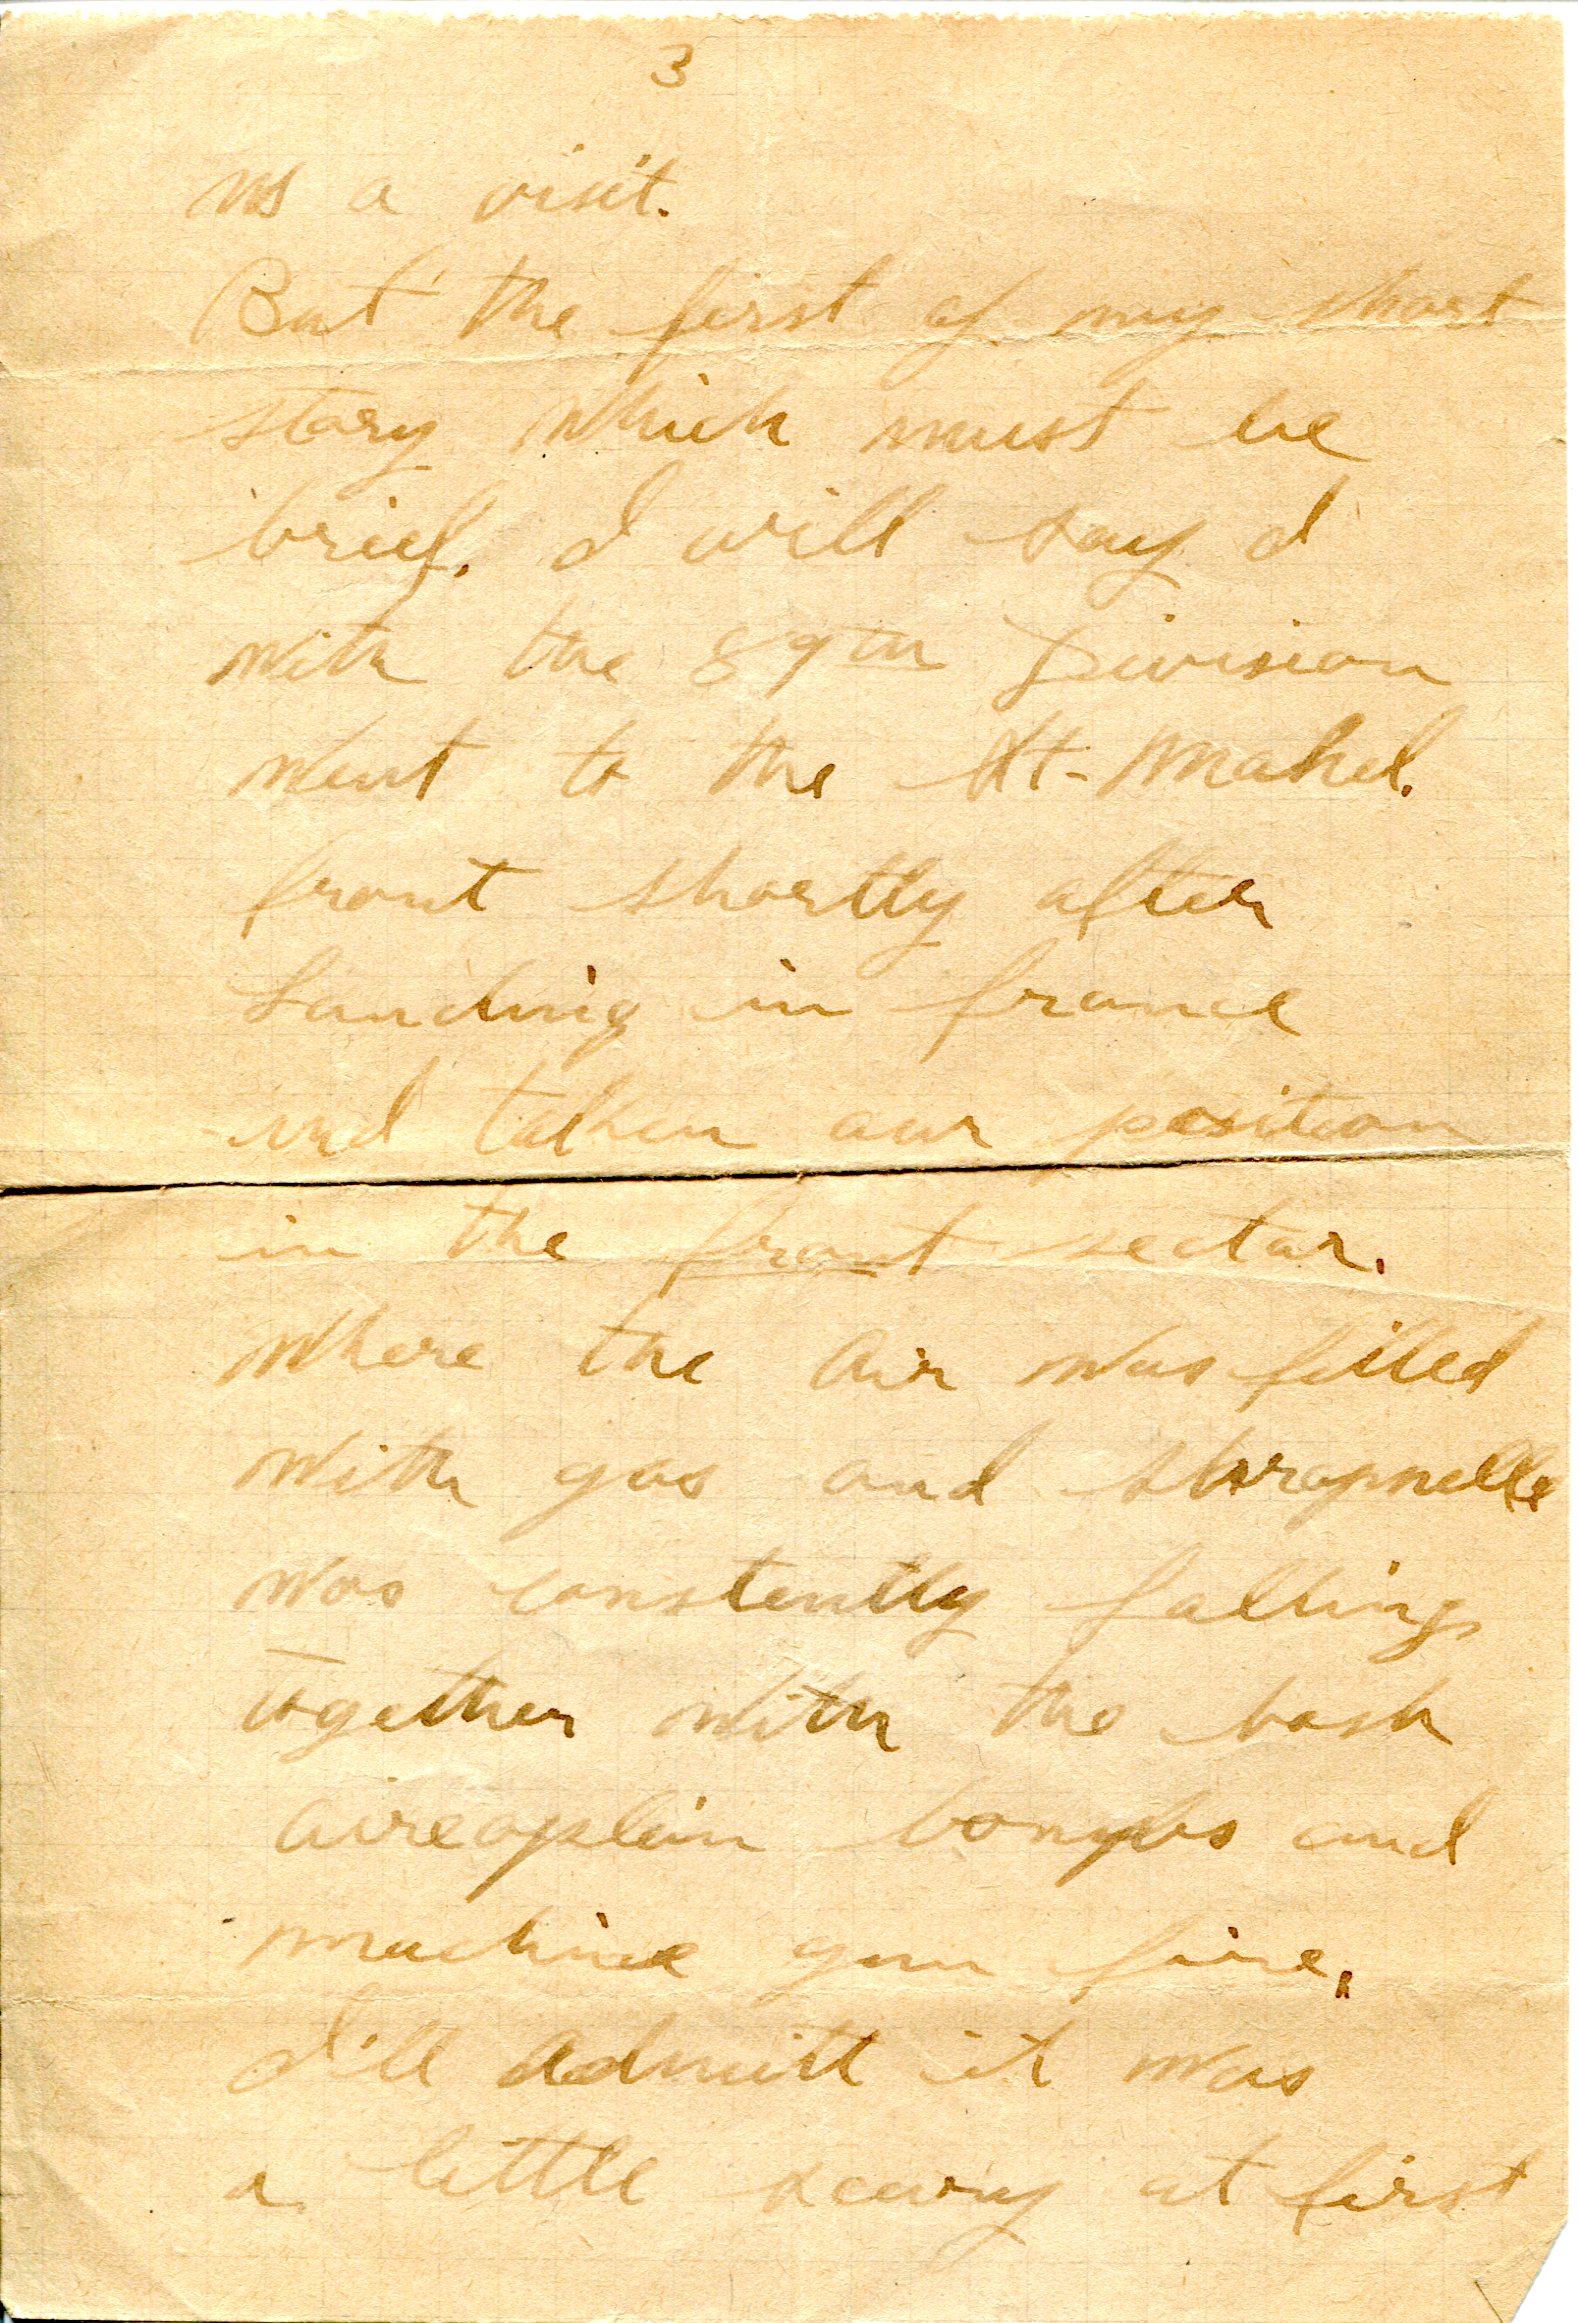 3
us a visit.
But the first of my short
story which must be
brief. I will say I
with the 89th Division
went to the St-Mahel.
front shortly after
Landing in france
and talken our position
in the front sector.
where the air was filled
with gas and shrapnelle
was constently falling,
together with the bosh
aireoplain bombs and
machine gun fire,
I'll admitt it was
a little scary at first